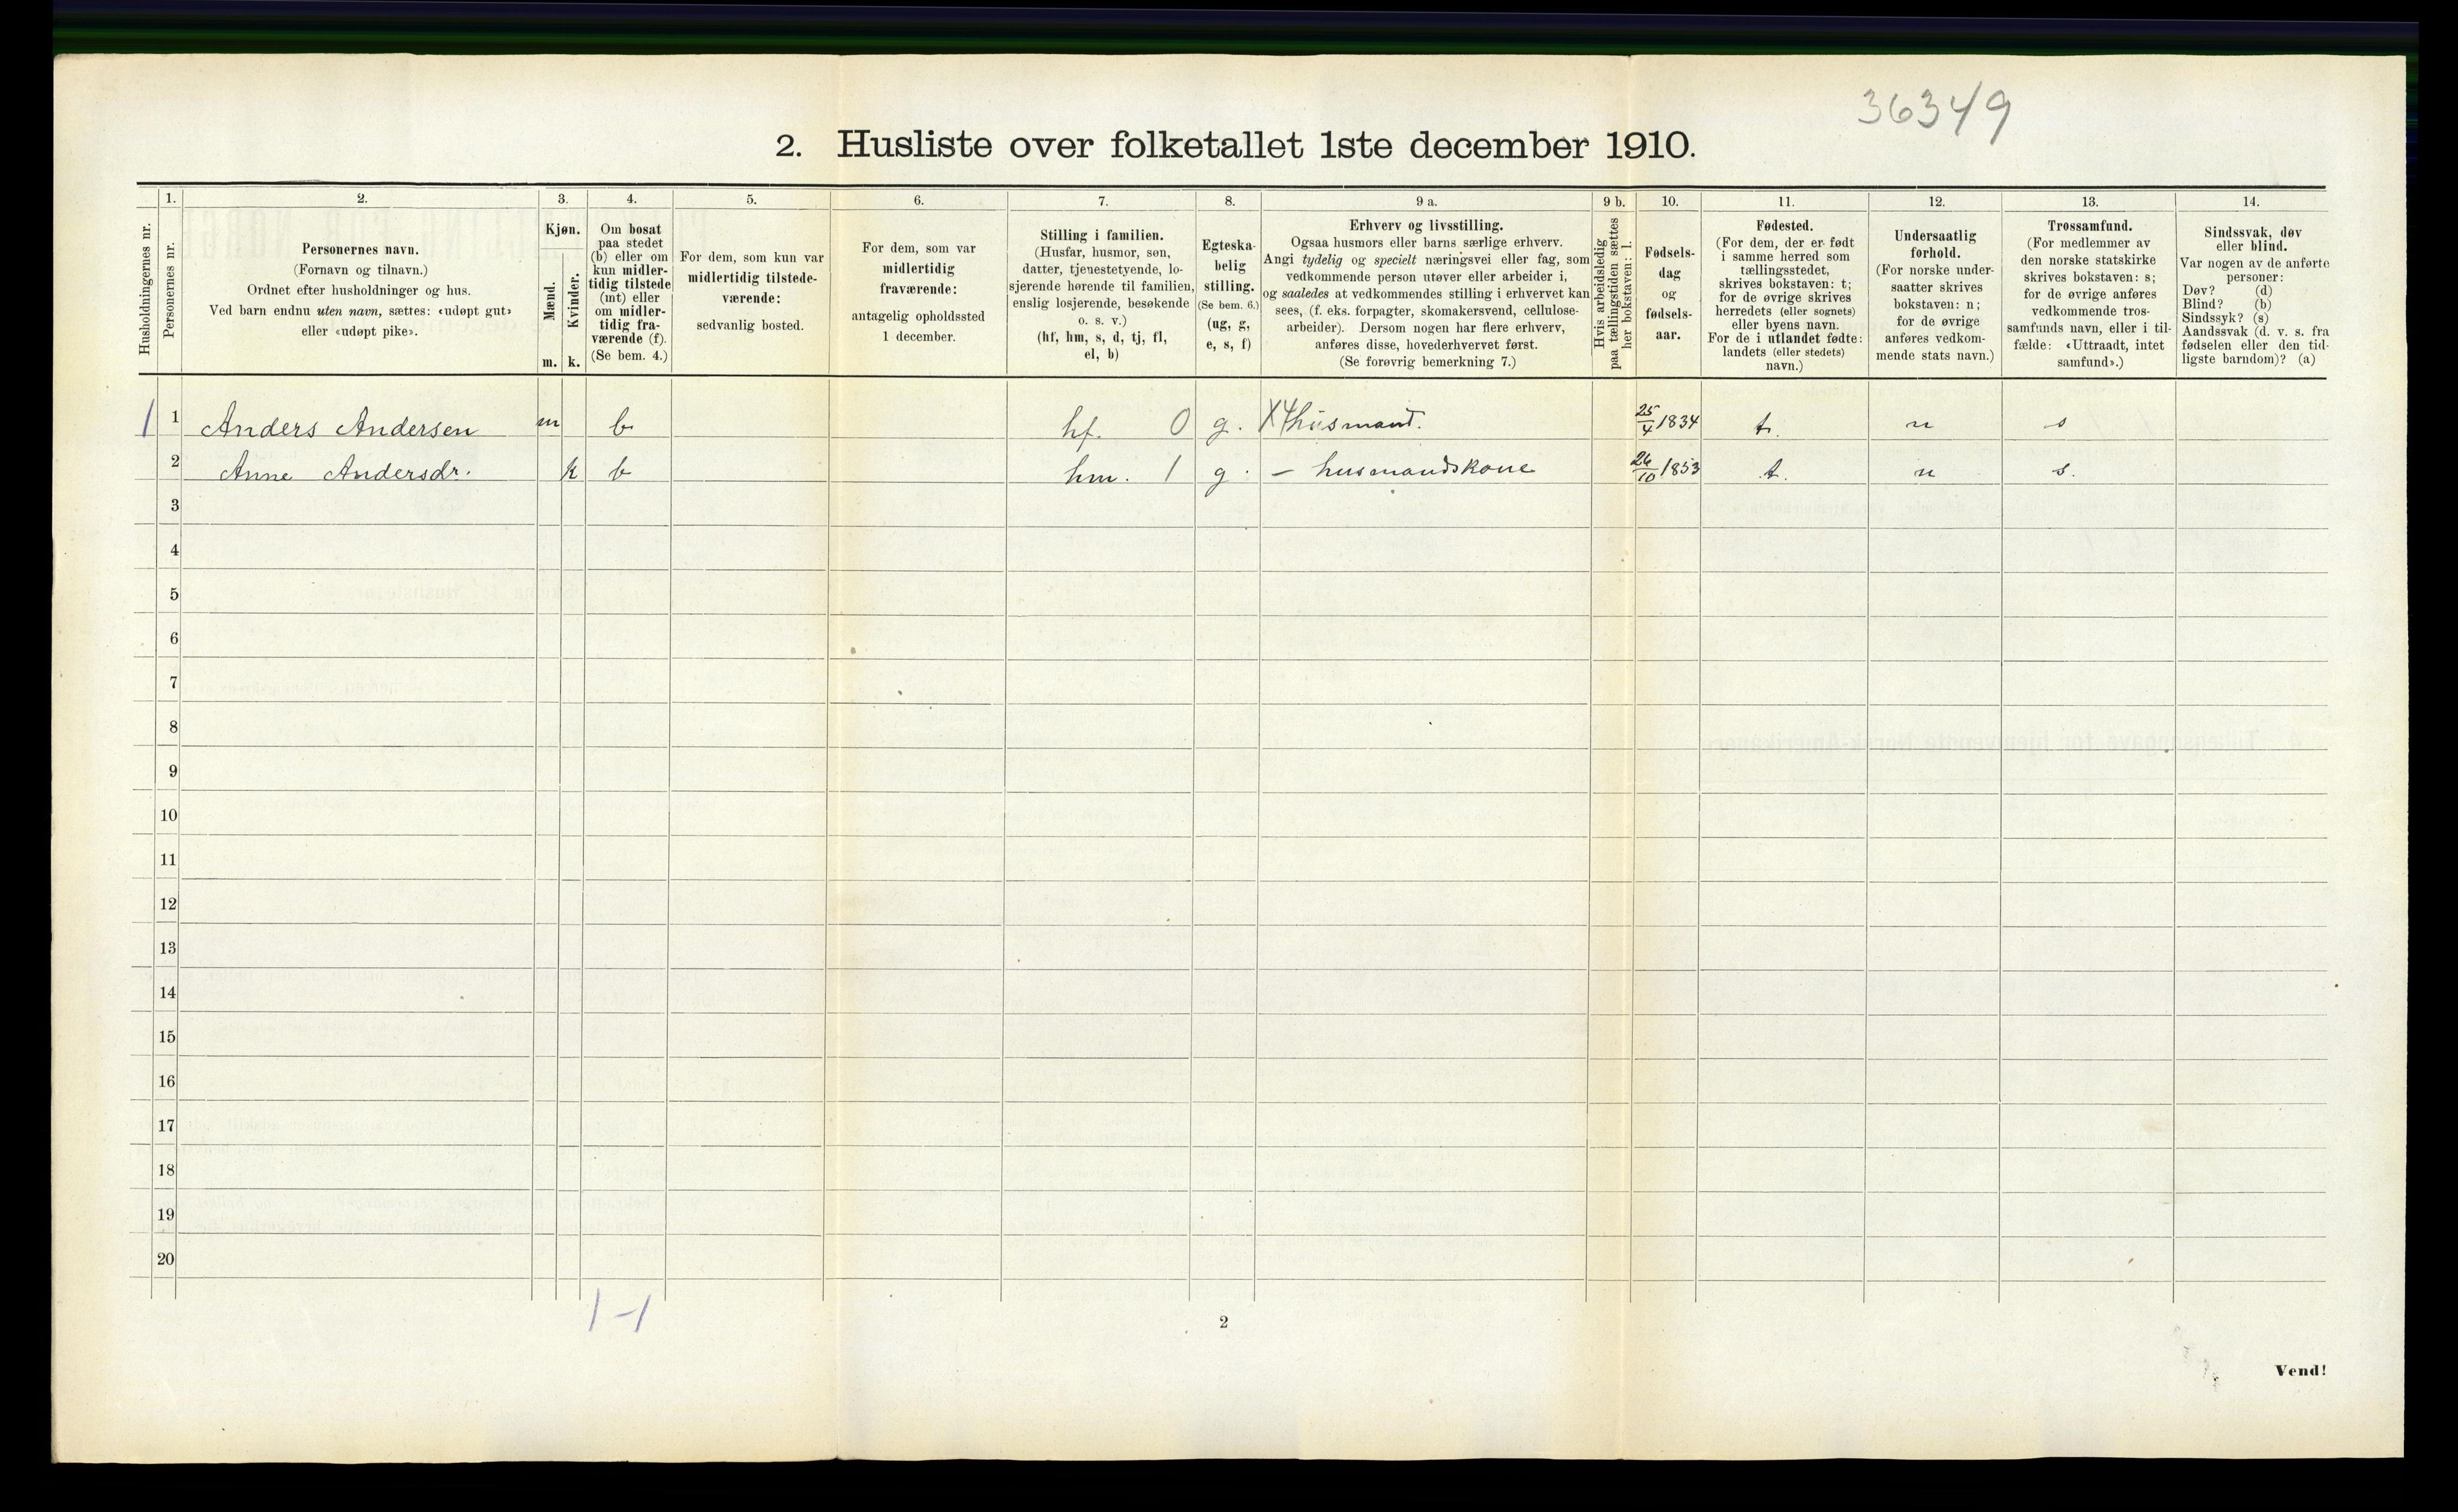 36349
2. Husliste over folketallet 1ste december 1910.
Husholdningernes nr.
1.
Personernes nr.
2.
Personernes navn.
(Fornavn og tilnavn.)
Ordnet efter husholdninger og hus.
Ved barn endnu uten navn, sættes: «udøpt gut»
eller «udøpt pike».
3.
Kjøn.
Mænd.
Kvinder.
m. k.
4.
Om bosat
paa stedet
(b) eller om
kun midler-
tidig tilstede
(mt) eller
om midler-
tidig fra-
værende (f).
(Se bem. 4.)
5.
For dem, som kun var
midlertidig tilstede-
værende:
sedvanlig bosted.
6.
For dem, som var
midlertidig
fraværende:
antagelig opholdssted
1 december.
7.
Stilling i familien.
(Husfar, husmor, søn,
datter, tjenestetyende, lo-
sjerende hørende til familien,
enslig losjerende, besøkende
o. s. v.)
(hf, hm, s, d, tj, fl,
el, b)
8.
Egteska-
belig
stilling.
(Se bem. 6.)
(ug, g,
e, s, f)
9 a.
Erhverv og livsstilling.
Ogsaa husmors eller barns særlige erhverv.
Angi tydelig og specielt næringsvei eller fag, som
vedkommende person utøver eller arbeider i,
og saaledes at vedkommendes stilling i erhvervet kan
sees, (f. eks. forpagter, skomakersvend, cellulose-
arbeider). Dersom nogen har flere erhverv,
anføres disse, hovederhvervet først.
(Se forøvrig bemerkning 7.)
9 b.
Hvis arbeidsledig
paa tællingstiden sættes
her bokstaven: l.
10.
Fødsels-
dag
og
fødsels-
aar.
11.
Fødested.
(For dem, der er født
i samme herred som
tællingsstedet,
skrives bokstaven: t;
for de øvrige skrives
herredets (eller sognets)
eller byens navn.
For de i utlandet fødte:
landets (eller stedets)
navn.)
12.
Undersaatlig
forhold.
(For norske under-
saatter skrives
bokstaven: n;
for de øvrige
anføres vedkom-
mende stats navn.)
13.
Trossamfund.
(For medlemmer av
den norske statskirke
skrives bokstaven: s;
for de øvrige anføres
vedkommende tros-
samfunds navn, eller i til-
fælde: «Uttraadt, intet
samfund».)
14.
Sindssvak, døv
eller blind.
Var nogen av de anførte
personer:
Døv? (d)
Blind? (b)
Sindssyk? (s)
Aandssvak (d. v. s. fra
fødselen eller den tid-
ligste barndom)? (a)
1 1 Anders Andersen m b hf. 0 g. X4 husmand. 25/4 1834 t. n s
2 Anne Andersdr. k b hm. 1 g. – husmandskone 26/10 1853 t. n s.
3
4
5
6
7
8
9
10
11
12
13
14
15
16
17
18
19
20
1-1
2
Vend!